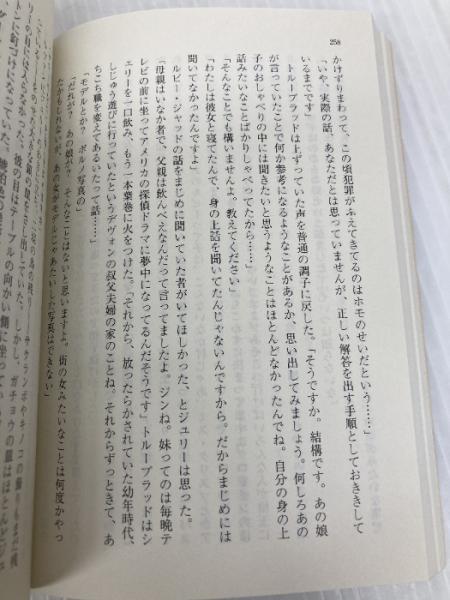 258
かけずりまわって、この頃犯罪がふえてきてるのはホモのせいだという……」
「いや、実際の話、あなただとは思っていませんが、正しい解答を出す手順としておききして
いるまでです」
トルーブラッドは上ずっていた声を普通の調子に戻した。「そうですか。結構です。あの娘
が言っていたことで何か参考になるようなことがあるか、思い出してみましょう。何しろあの
子のおしゃべりの中には聞きたいと思うようなことはほとんどなかったんでね。自分の身の上
話みたいなことばかりしゃべってたから……」
「そんなことでも構いませんよ。教えてください」
「わたしは彼女と寝てたんで、身の上話を聞いてたんじゃないんですから。だからまじめには
聞いてなかったんですよ」
ルビー・ジャッドの話をまじめに聞いていた者がいてほしかった、とジュリーは思った。
「母親はいなか者で、父親は飲んべえなんだって言ってましたよ。ジンね。妹ってのは毎晩テ
レビの前に坐ってアメリカの探偵ドラマに夢中になってるんだそうです」トルーブラッドはシ
ェリーを一口飲み、もう一本葉巻に火をつけた。「それから、放ったらかされていた幼年時代、
しじゅう遊びに行っていたというデヴォンの叔父夫婦の家のことね、それからずっときて、あ
ちこち職を変えてあるいたって話……」
「モデルとか？ポルノ写真の」
「だれが？あの娘が？そんなことはないと思いますよ。街の女みたいなことは何度かやっ
たかもしれないが、